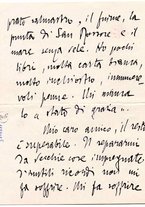 prato salmastro, il fiume, la
punta di San Rossore e il
mare senza vele. Ho pochi
libri, molta carta bianca,
molto inchiostro, innumere-
voli penne. Mi manca
lo « stato di grazia ».
Mio caro amico, il resto
è superabile. Il
da vecchie cose impregnate
d'umili ricordi non mi
fa soffrire. Mi fa soffrire